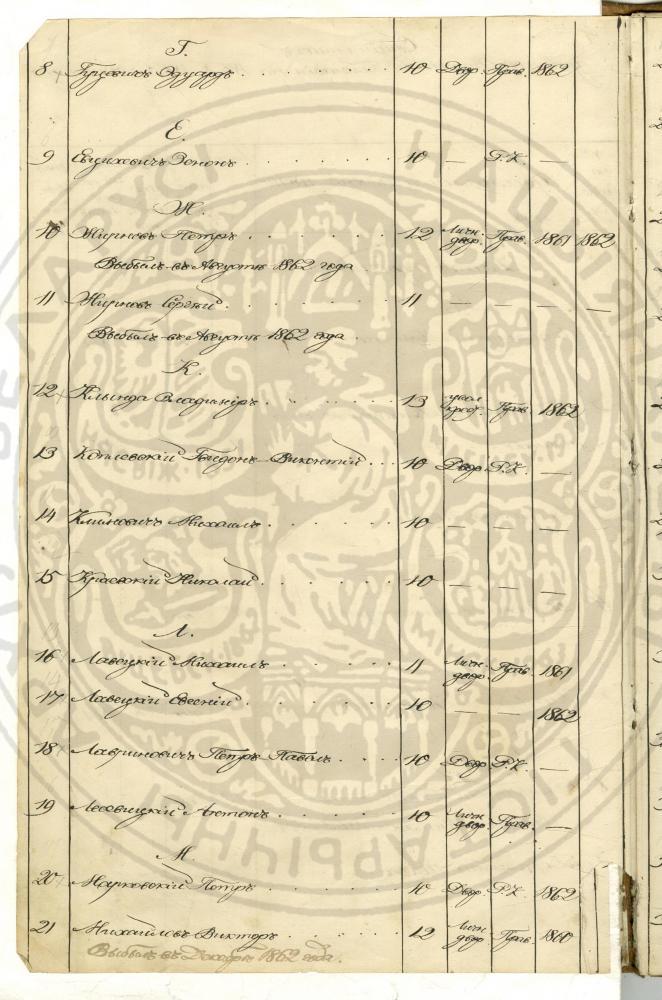 Г.
8 Гуцевичъ Эдуардъ 10 Двор. Прав. 1862
Е.
9 Евциховичъ Зенонъ 10 — Р.К. —
Ж.
10 Жирновъ Петръ 12 Личн. двор. Прав. 1861 1862
Выбылъ въ Августѣ 1862 года
11 Жирновъ Сергѣй 11 — — — —
Выбылъ въ Августѣ 1862 года
К.
12 Клында Владиміръ 13 Прав. 1862
13 Викентій 10 Двор. Р.К. —
14 Климовичъ Михаилъ 10 — — —
15 Краевскій Николай 10 — — —
Л.
16 Лавецкій Михаилъ 11 Личн. двор. Прав. 1861
17 Лавецкій Евгеній 10 — — 1862
18 Лавриновичъ Петръ Павелъ 10 Двор. Р.К. —
19 Антонъ 10 Личн. двор. Прав. —
М.
20 Марковскій Петръ 10 Двор. Р.К. 1862
21 Михайловъ Викторъ 12 Личн. двор. Прав. 1860
Выбылъ въ Декабрѣ 1862 года.